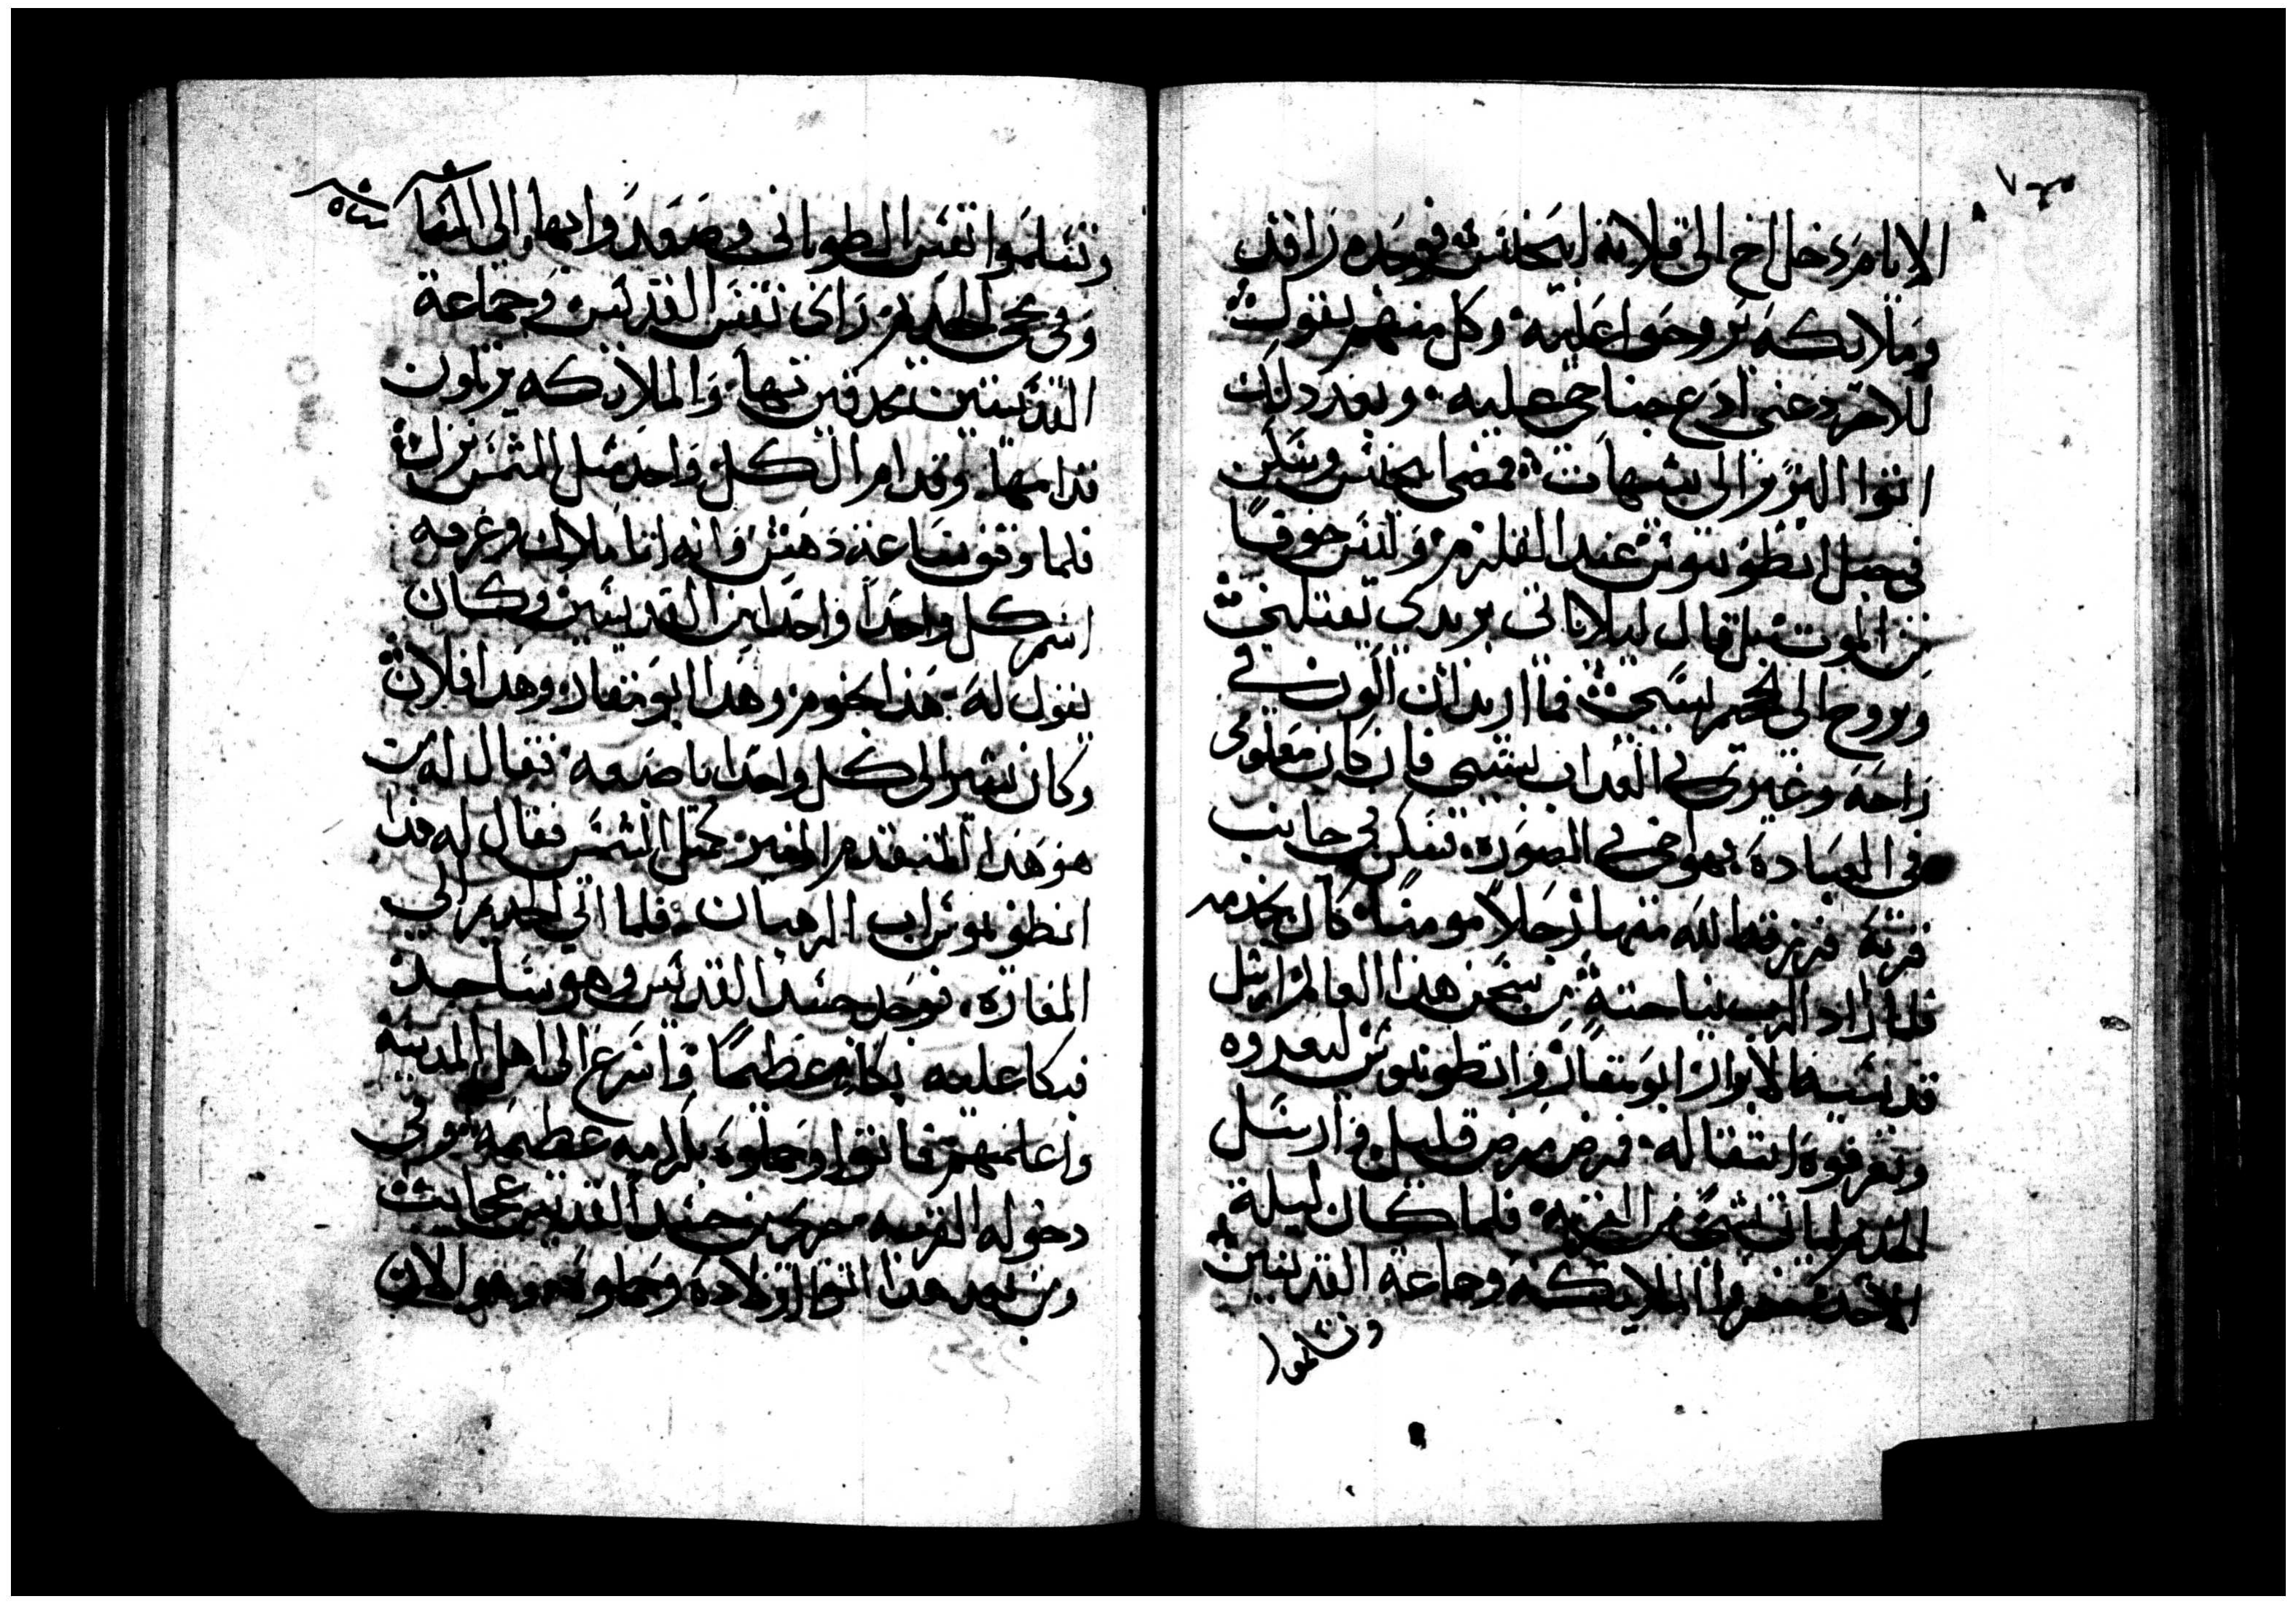 الايام دخل اخ الى قلاية ابيحنس فوجده راقد
وملايكه يروحوا عليه وكل منهم يقول
للاخر دعني ادع جناحي عليه وبعد دلك
اتوا البربر الى شيهات فمضى ابحنس وسكن
في جبل انطونيوس عند القلزم وليس خوفا
من الموت بل قال ليلا ياتي بربري يقتلني
ويروح الى الجحيم بسببي فما اريد ان اكون في
راحه وغيري في العداب بسببي فان كان مقلومي
في العباده فهو اخي في الصوره فسكن في جانب
قريه فرزقه الله منها رجلا مومنا كان يخدمه
فلما اراد الرب نياحته من سجن هذا العالم ارسل
قديسيه الابرار ابو مقار وانطونيوس ليعدوه
ويعرفوه انتقاله فمرض مرض قليل وارسل
الخديم لياتي بشي من القريه فلما كان ليلة
الاحد حضروا الملايكه وجماعة القديسين
وتسلموا
وتسلموا نفس الطوباني وصعدوا بها الى السما
وفي مجي الخديم راى نفس القديس وجماعة
القديسين محدقين بها والملايكه يرتلون
قدامها وقدام الكل واحد مثل الشمس يزل
فلما وقف ساعة دهش وانه اتا ملاك وعرفه
اسم كل واحدا واحدا من القديسين وكان
يقول له هذا بخوم وهذا ابو مقار وهدا فلان
وكان يشير الى كل واحدا باصبعه فقال له من
هو هدا المتقدم المنير كمثل الشمس فقال له هدا
انطونيوس اب الرهبان فلما اتي الخديم الي
المغاره فوجد جسد القديس وهو ساجد
فبكا عليه بكاء عظيما واسرع الى اهل المدينة
واعلمهم فاتوا وحملوه بكرامه عظيمه وفي
دخوله القريه ظهر من جسد القديس عجايب
ومن بعد هذا اتوا اولاده وحملوه وهو الان